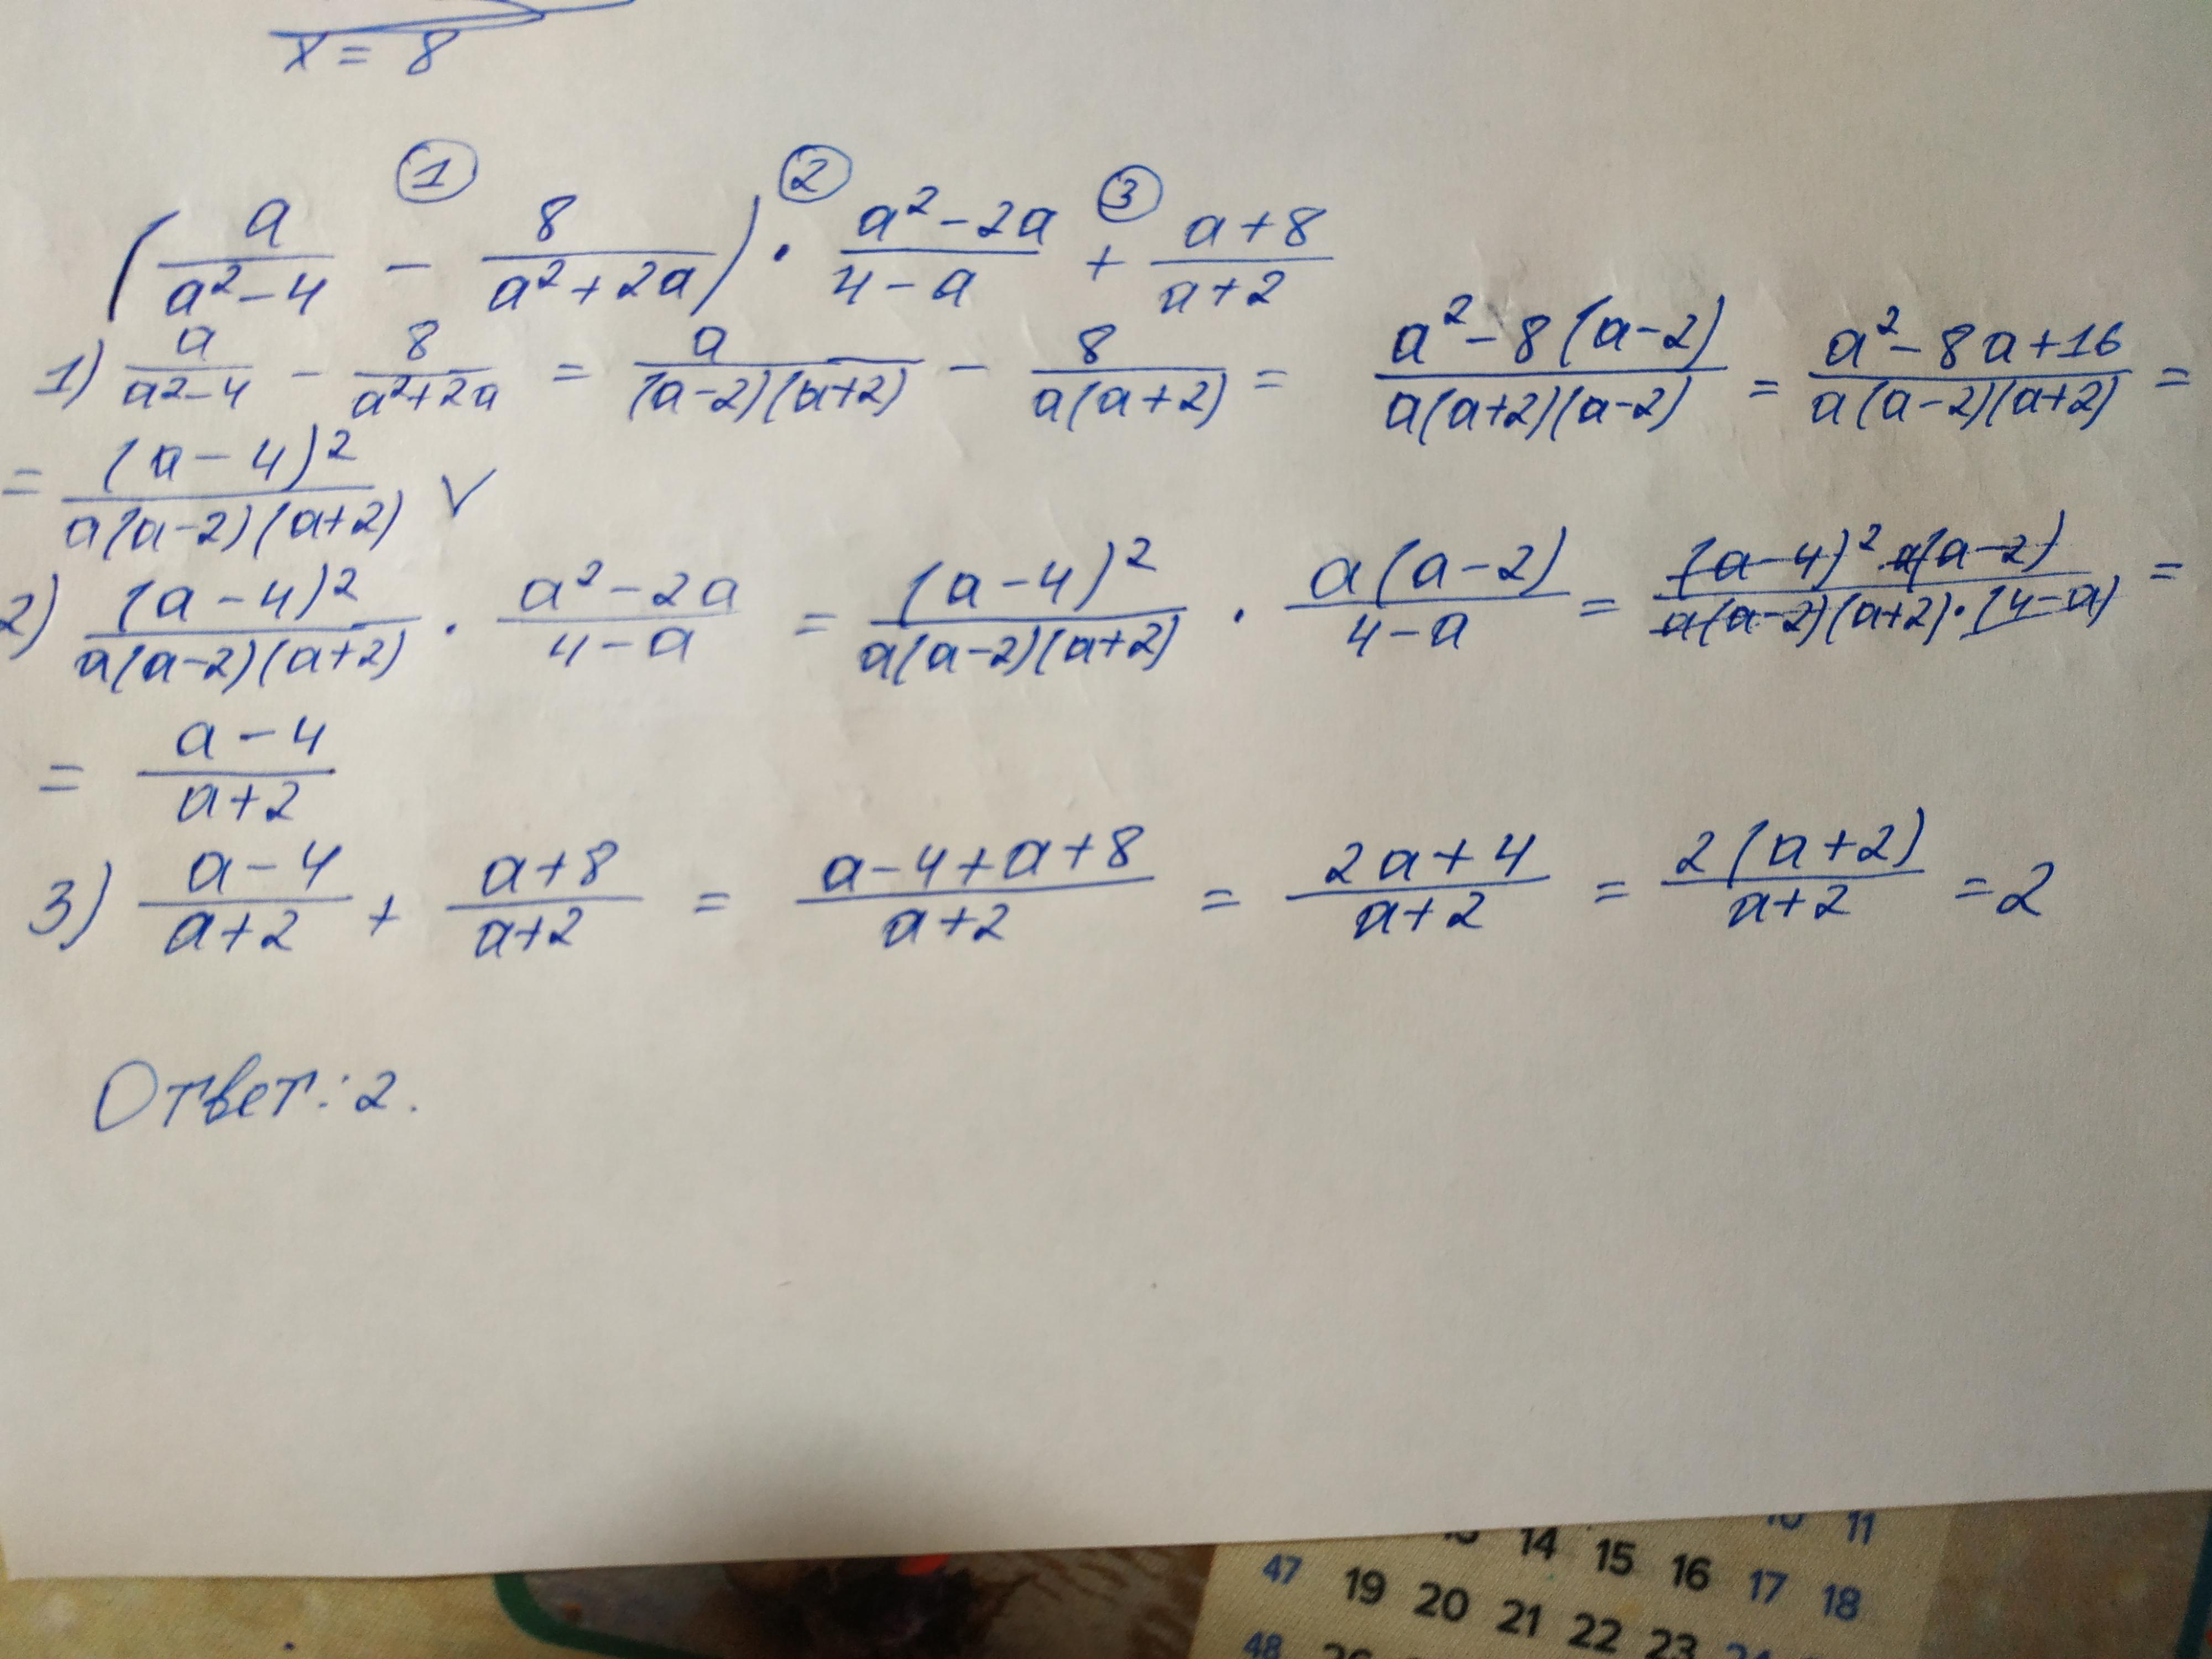 x = 8
① ② ③
(a/(a² - 4) - 8/(a² + 2a)) · (a² - 2a)/(4 - a) + (a + 8)/(a + 2)
1) a/(a² - 4) - 8/(a² + 2a) = a/((a - 2)(a + 2)) - 8/(a(a + 2)) = (a² - 8(a - 2))/(a(a + 2)(a - 2)) = (a² - 8a + 16)/(a(a - 2)(a + 2)) =
= (a - 4)²/(a(a - 2)(a + 2)) ✓
2) (a - 4)²/(a(a - 2)(a + 2)) · (a² - 2a)/(4 - a) = (a - 4)²/(a(a - 2)(a + 2)) · a(a - 2)/(4 - a) = (a - 4)² a(a - 2)/(a(a - 2)(a + 2) · (4 - a)) =
= (a - 4)/(a + 2)
3) (a - 4)/(a + 2) + (a + 8)/(a + 2) = (a - 4 + a + 8)/(a + 2) = (2a + 4)/(a + 2) = 2(a + 2)/(a + 2) = 2
Ответ: 2.
11
14 15 16 17 18
47 19 20 21 22 23
48